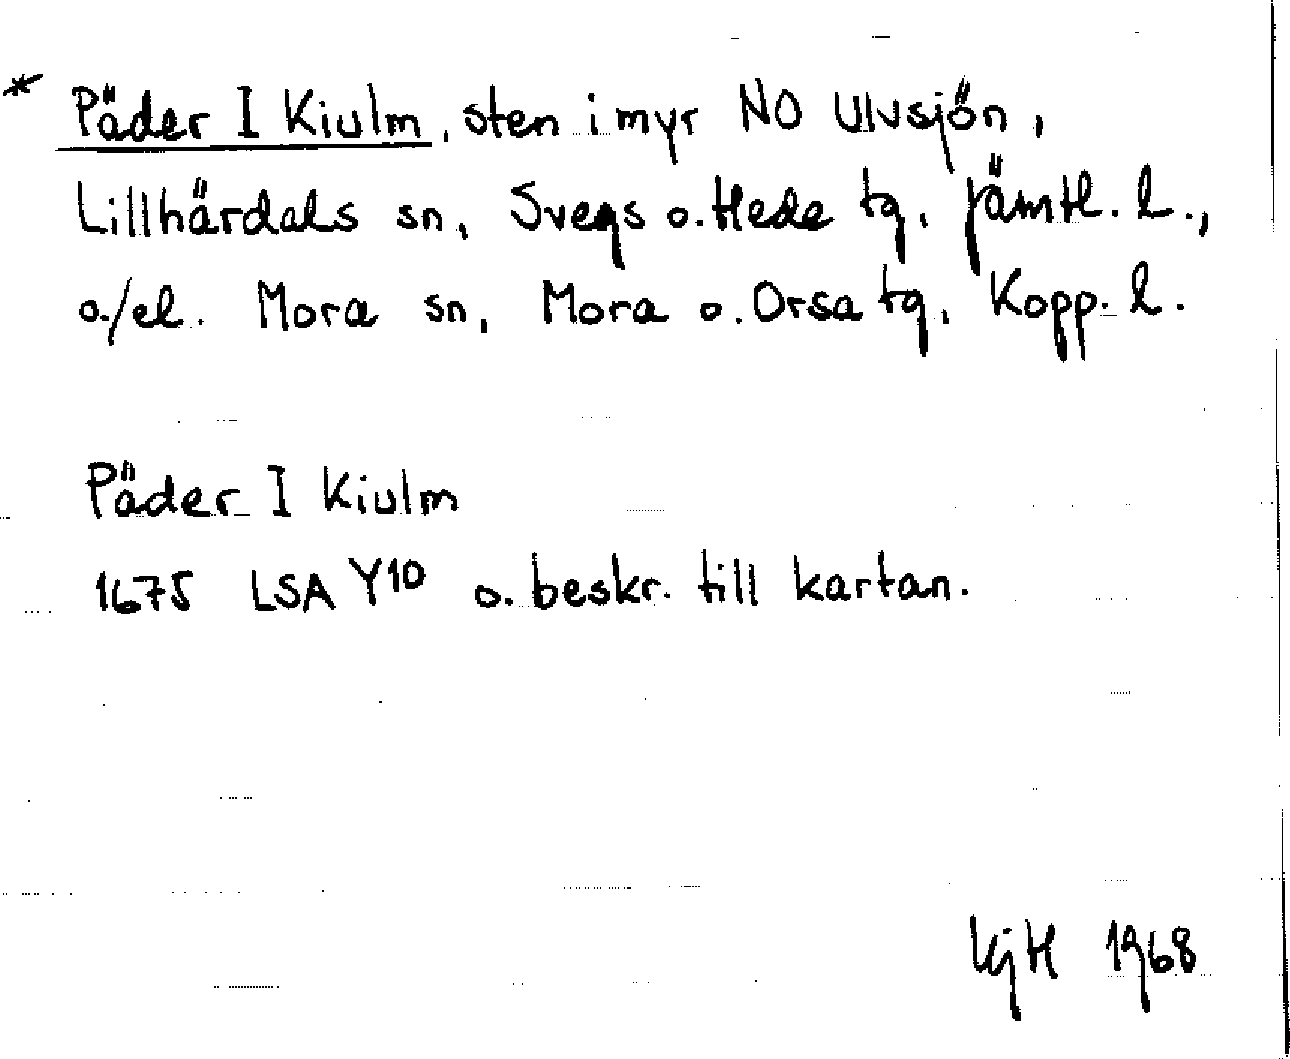 * Päder I Kiulm, sten i myr NO Ulvsjön,
Lillhärdals sn, Svegs o. Hede tg, Jämtl. l.,
o./el. Mora sn, Mora o. Orsa tg, Kopp. l.
Päder I Kiulm
1675 LSA Y10 o. beskr. till kartan.
KjH 1968